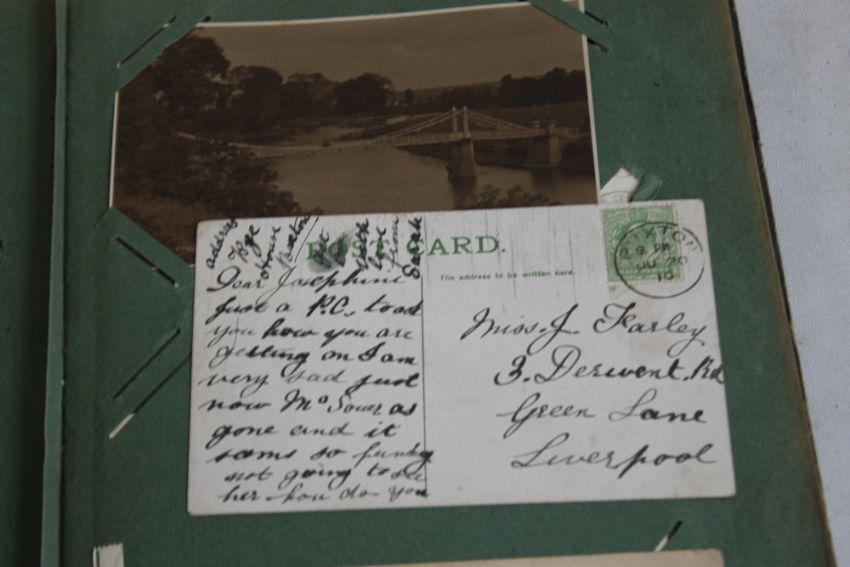 POST CARD.
The address to be written here.
Dear Josephine
just a P.C. to ask
you how you are
getting on I am
very sad just
now Mc Sower as
gone and it
seams so funny
not going to see
her how do you
with
love
from
Sarah
address
Buxton
BUXTON
8. PM
JU 20
10
Miss. J. Farley
3. Derwent. Rd
Green Lane
Liverpool